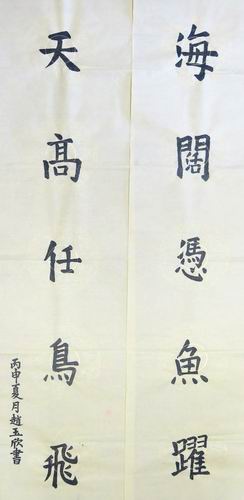 海闊憑魚躍
天高任鳥飛
丙申夏月趙玉欣書